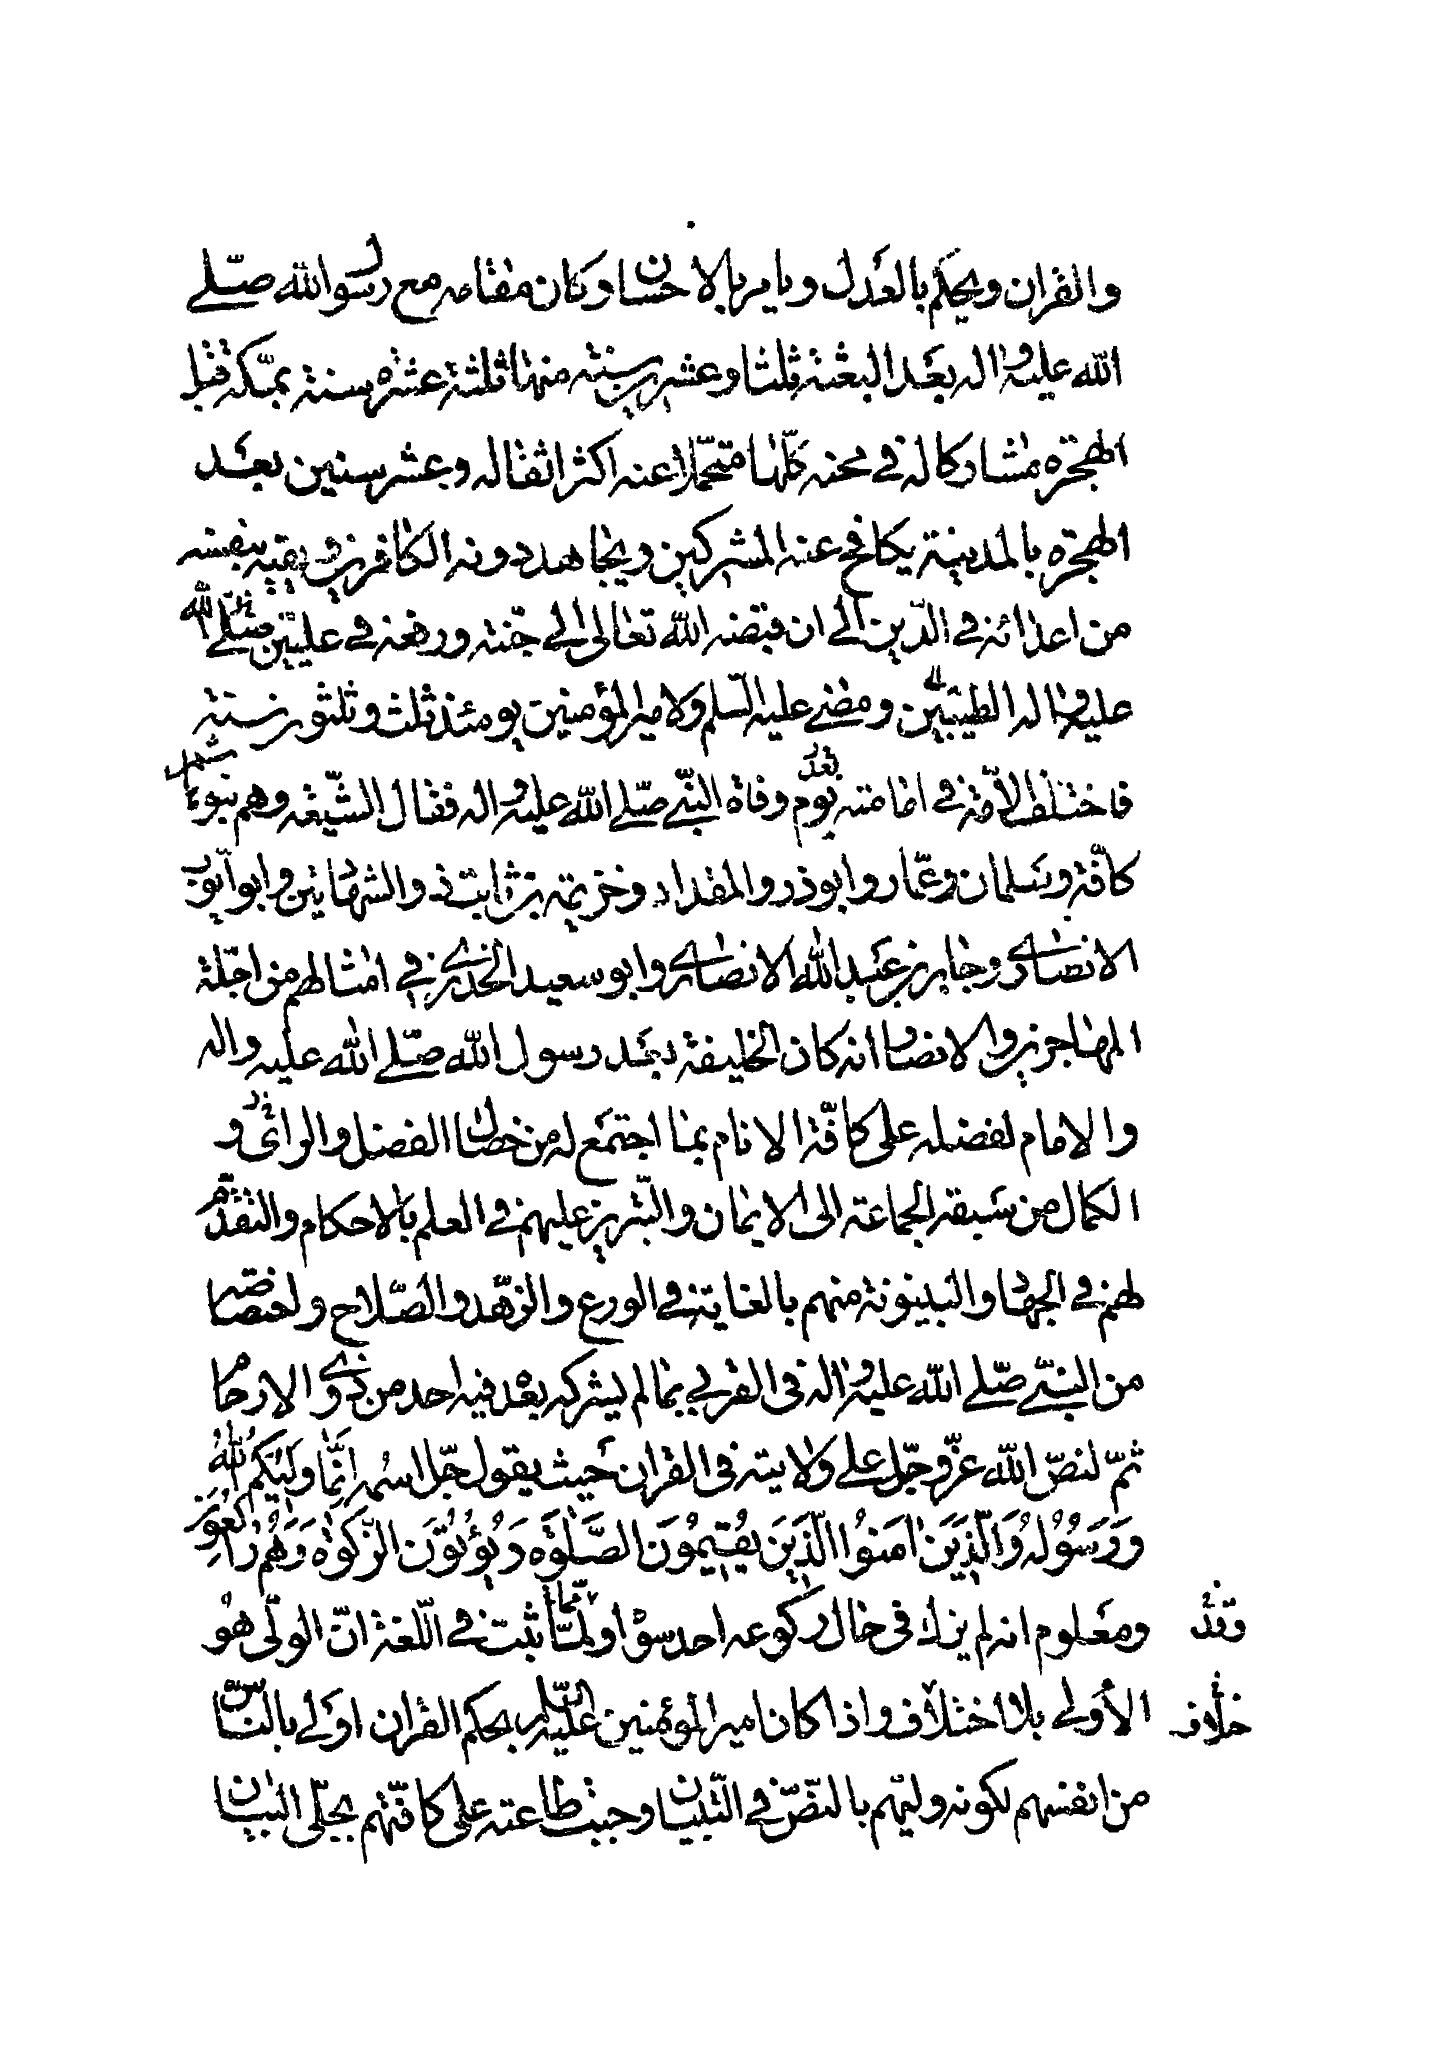 والقران ويحكم بالعدل ويامر بالاحسان وكان مقامه مع رسول الله صلى
الله عليه واله بعد البعثة ثلثا وعشرين سنة منها ثلثة عشره سنة بمكة قبل
الهجرة مشاركا له في محنه كلها متحملا عنه اكثر اثقاله وعشر سنين بعد
الهجرة بالمدينة يكافح عنه المشركين ويجاهد دونه الكافرين ويقيه بنفسه
من اعدائه في الدين الى ان قبضه الله تعالى الى جنته ورفعه في عليين صلى الله
عليه واله الطيبين ومضى عليه السلم ولامير المؤمنين يومئذ ثلث وثلثون سنة
فاختلف الامة في امامته يوم وفاة النبي صلى الله عليه واله فقال الشيعة وهم بنو هاشم
كافة وسلمان وعمار وابوذر والمقداد وخزيمة بن ثابت ذو الشهادتين وابو ايوب
الانصاري وجابر بن عبد الله الانصاري وابو سعيد الخدري في امثالهم من اجلة
المهاجرين والانصار انه كان الخليفة بعد رسول الله صلى الله عليه واله
والامام لفضله على كافة الانام بما اجتمع له من خصال الفضل والرائ و
الكمال من سبقه الجماعة الى الايمان والتبريز عليهم في العلم بالاحكام والتقدم
لهم في الجهاد والبينونة منهم بالغاية في الورع والزهد والصلاح ولاختصاصه
من النبي صلى الله عليه واله في القربى بما لم يشركه بعد فيه احد من ذوي الارحام
ثم لنص الله عز وجل على ولايته في القران حيث يقول جل اسمه اِنَّما وَلِيُّكُم اللهُ
وَرَسُولُهُ وَالَّذِينَ امَنُوا الَّذِينَ يُقيمُونَ الصَّلوةَ وَيُؤْتُونَ الزَّكوةَ وَهُمْ راكِعُونَ
ومعلوم انه لم يزك في حال ركوعه احد سوا ولما ثبت في اللغة ان الولي هو
وقد
الأولى بلا اختلاف واذا كان امير المؤمنين عليه السلم بحكم القران اولى بالناس
خلاف
من انفسهم لكونه وليهم بالنص في التبيان وجبت طاعته على كافتهم بجلي البيان